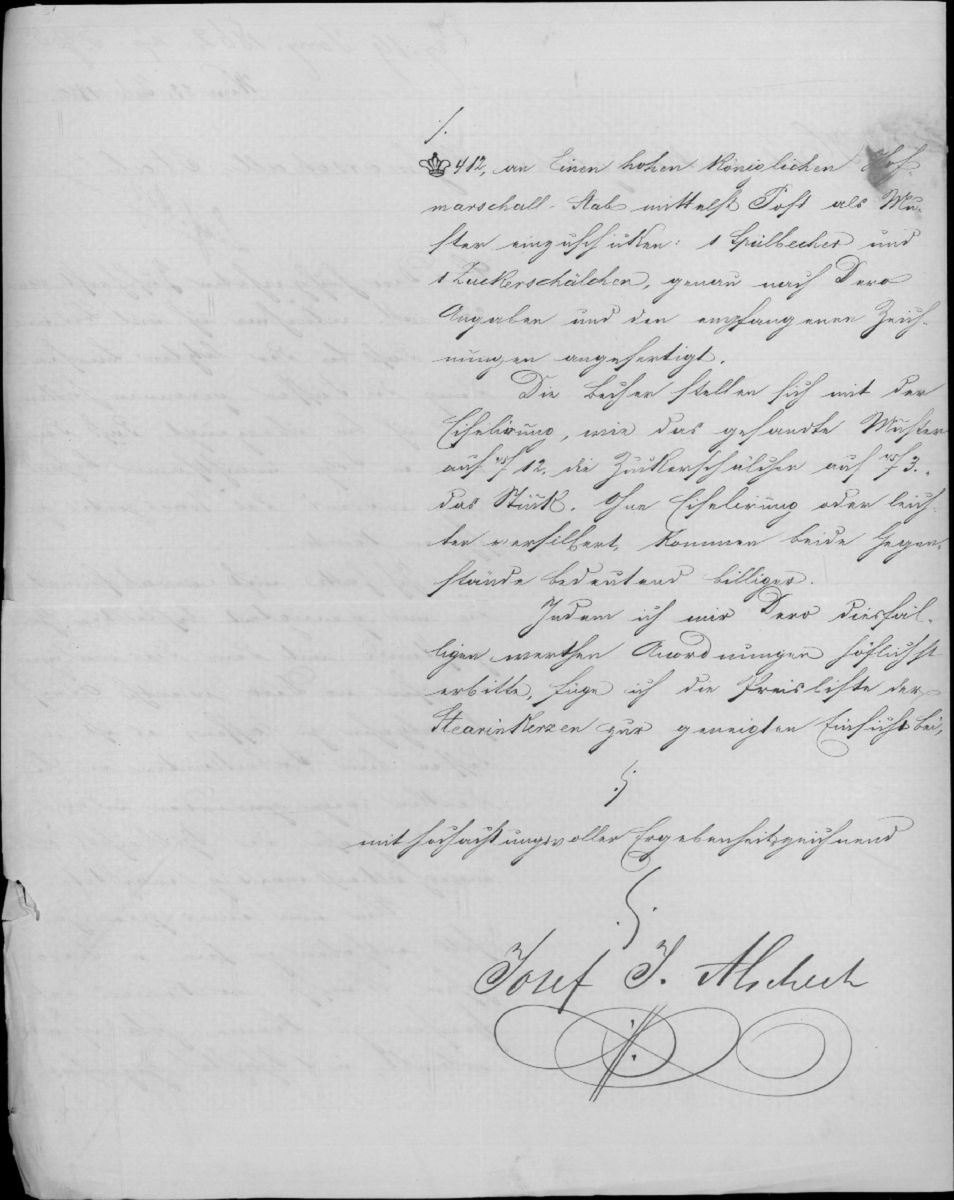 ·/.
412, an Einen hohen Königlichen Hof-
marschall-Stab mittelst Post als Mu-
ster einzuschicken: 1 Spülbecher und
1 Zuckerschälchen, genau nach Dero
Angaben und den empfangenen Zeich-
nungen angefertigt.
Die Becher stellen sich mit der
Ciselirung, wie das gesandte Muster
auf 12. die Zuckerschälchen auf 3.
das Stück. Ohne Ciselirung oder leich-
ter versilbert, kommen beide Gegen-
stände bedeutend billiger.
Indem ich mir Dero diesfäl-
ligen werthen Anordnungen höflichst
erbitte, füge ich die Preisliste der
Stearinkerzen zur geneigten Einsicht bei,
mit hochachtungsvoller Ergebenheit zeichnend
Josef J. Alschech